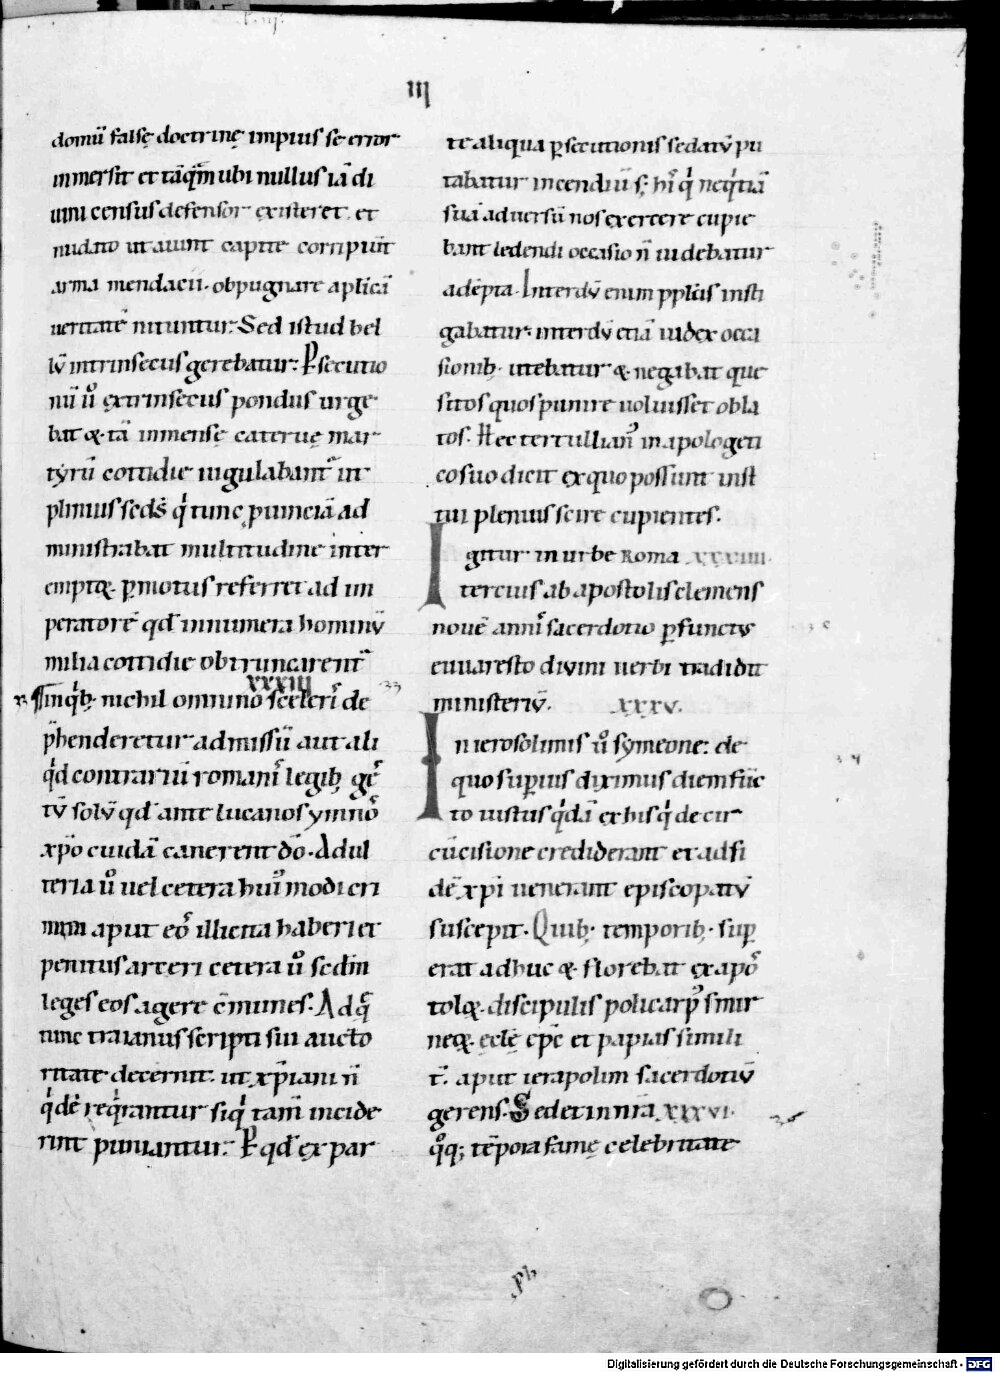 III
domū falsę doctrinę impius se error
inmersit et tāq̄m ubi nullus iā di
uini census defensor existeret. et
nudato ut aiunt capite corripiūt
arma mendacii. obpugnare aplicā
ueritatē nituntur. Sed istud bel
lū intrinsecus gerebatur. Ꝑsecutio
nū ū extrinsecus pondus urge
bat & tā inmensę cateruę mar
tyrū cottidie iugulabant᷑ ut
plinius seds̄ q̇ tunc ꝓuinciā ad
ministrabat multitudine inter
emptoꝝ ꝑmotus referret ad im
peratorē qd̄ innumera hominū
milia cottidie obtruncarent᷑
XXXIII
33 Inq̇bꝫ nichil omnino sceleris᷑ de
p̄henderetur admissū aut ali
q̇d contrariū romanis᷑ legibꝫ ge᷑
tū solū qd̄ ante lucanos ymno᷑
xp̄o cuidā canerent dō. Adul
teria ū uel cetera hui᷒modi cri
mina aput eo᷑ illicita haberi et
penitus arceri cetera ū sedm̄
leges eos agere cm̄munes. Ad q̄
tunc traianus scripti sui aucto
ritate decernit. ut xp̄iani n̄
q̇dē req̇rantur siq̇ tam̄ incide
rint puniantur. Ꝑ qd̄ ex par
te aliqua ꝑsecutionis sedatū pu
tabatur incendiū s; hi᷑ q̇ neq̇tiā
suā aduersū nos exercere cupie
bant ledendi occasio n̄ uidebatur
adēpta. Interdū enim ppl̄us insti
gabatur. interdū etiā iudex occa
sionibꝫ utebatur & negabat que
sitos quos punire uoluisset obla
tos. Hec tertullian᷒ in apologeti
co suo dicit ex quo possunt inst
tui plenius scire cupientes.
Igitur in urbe Roma XXXIIII.
tercius ab apostolis clemens
nouē annis᷑ sacerdotio ꝑfunctus
euuaresto diuini uerbi tradidit
ministeriū. XXXV.
In ierosolimis ū symeone: de
quo suꝑius diximus diem fūc
to iustus q̇dā ex his q̇ de cir
cūcisione crediderant et ad fi
dē xp̄i uenerant episcopatū
suscepit. Quibꝫ temporibꝫ suꝑ
erat adhuc & florebat ex apo᷑
toloꝝ discipulis policarp᷒ smir
neoꝝ ecl̄ę epc̄ et papias simili
t᷑ aput ierapolim sacerdotiū
gerens. Sed et in nr̄a XXXVI.
q̊q; tēpora famę celebritate
Digitalisierung gefördert durch die Deutsche Forschungsgemeinschaft - DFG